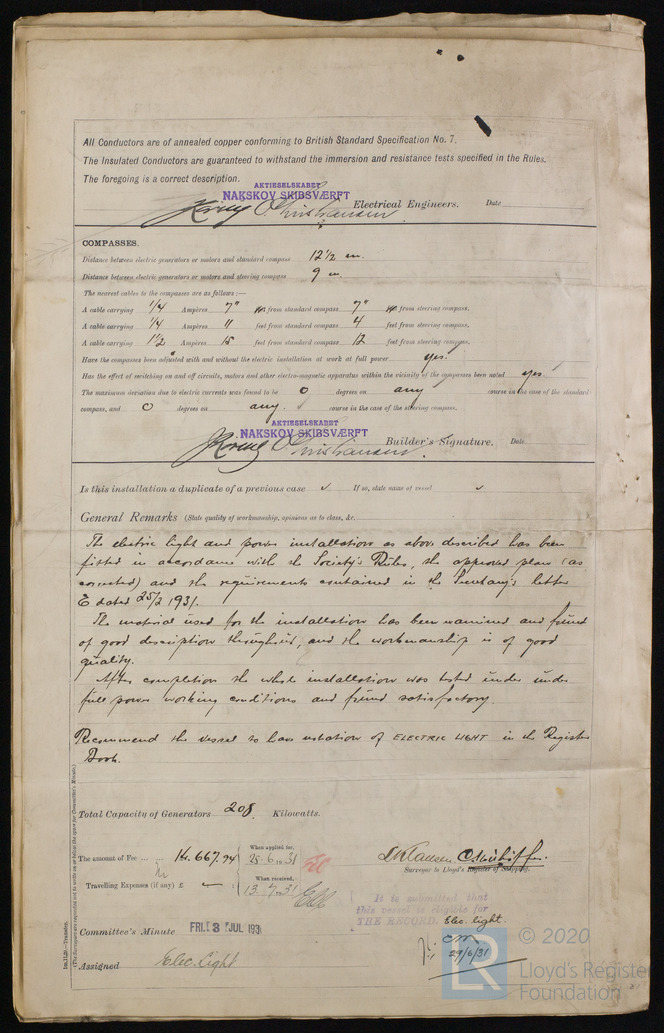 All Conductors are of annealed copper conforming to British Standard Specification No. 7.
The Insulated Conductors are guaranteed to withstand the immersion and resistance tests specified in the Rules.
The foregoing is a correct description.
AKTIESELSKABET
NAKSKOV SKIBSVÆRFT
Electrical Engineers. Date
COMPASSES.
Distance between electric generators or motors and standard compass 12½ m.
Distance between electric generators or motors and steering compass 9 m.
The nearest cables to the compasses are as follows:—
A cable carrying 1/4 Ampères 7" from standard compass 7" from steering compass.
A cable carrying 1/4 Ampères 11 feet from standard compass 4 feet from steering compass.
A cable carrying 1½ Ampères 15 feet from standard compass 12 feet from steering compass.
Have the compasses been adjusted with and without the electric installation at work at full power yes.
Has the effect of switching on and off circuits, motors and other electro-magnetic apparatus within the vicinity of the compasses been noted yes
The maximum deviation due to electric currents was found to be 0 degrees on any course in the case of the standard
compass, and 0 degrees on any. course in the case of the steering compass.
AKTIESELSKABET
NAKSKOV SKIBSVÆRFT
Builder's Signature. Date
Is this installation a duplicate of a previous case ✓ If so, state name of vessel ✓
General Remarks (State quality of workmanship, opinions as to class, &c.
The electric light and power installation as above described has been
fitted in accordance with the Society's Rules, the approved plans (as
corrected) and the requirements contained in the Secretary's letter
E dated 25/2 1931.
The material used for the installation has been examined and found
of good description throughout, and the workmanship is of good
quality.
After completion the whole installation was tested under under
full power working conditions and found satisfactory.
Recommend the vessel to have notation of ELECTRIC LIGHT in the Register
Book.
Total Capacity of Generators 208. Kilowatts.
The amount of Fee ... ... Kr. 667.94 When applied for, 25.6.1931
Travelling Expenses (if any) £ — : When received, 13.7.31
Surveyor to Lloyd's Register of Shipping.
It is submitted that
this vessel is eligible for
THE RECORD. Elec. light.
29/6/31
Committee's Minute FRI. 3 JUL 1931
Assigned Elec. Light
Im.11.29.—Transfer.
(The Surveyors are requested not to write on or below the space for Committee's Minute.)
© 2020
LR
Lloyd's Register
Foundation